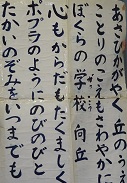 あさかがやく 丘のうえ
ことりのこえもさわやかに
ぼくらの学校 向丘
心もからだもたくましく
ポプラのようにのびのびと
たかいのぞみをいつまでも